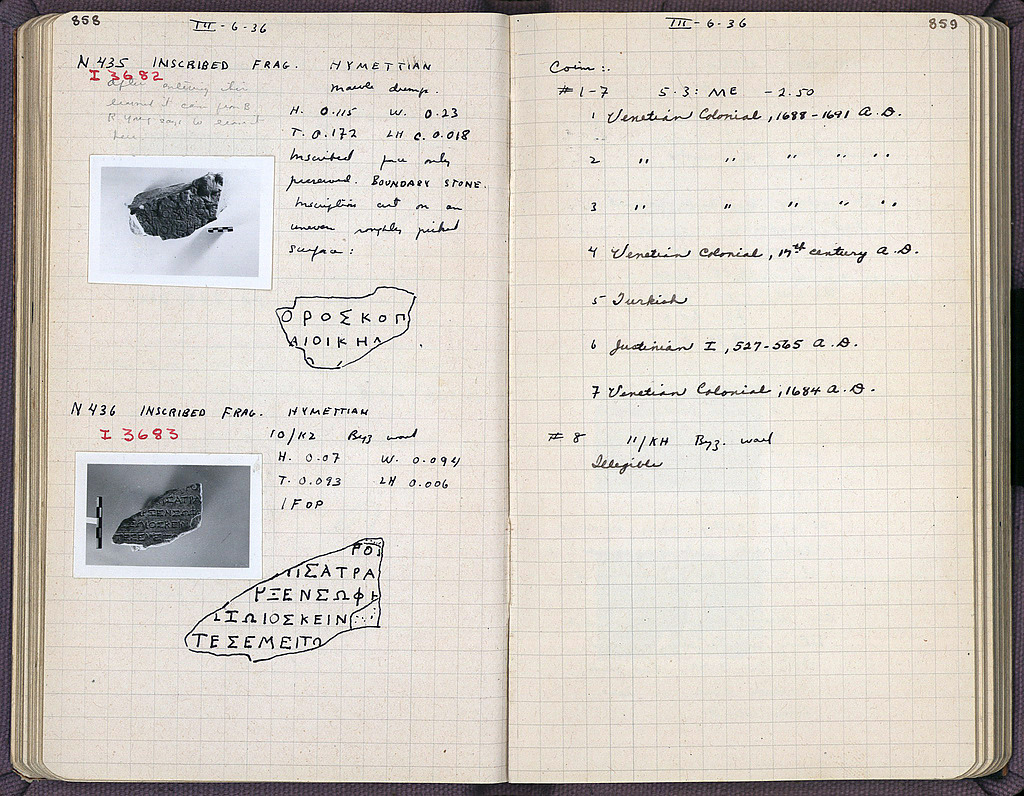 858
III - 6 - 36
N 435 INSCRIBED FRAG. HYMETTIAN
I 3682
marble dump.
After entering this
learned it came from B
R. Young says to leave it
here
H. 0.115 W. 0.23
T. 0.172 LH c. 0.018
Inscribed face only
preserved. BOUNDARY STONE.
Inscription cut on an
uneven roughly picked
surface:
ΟΡΟΣΚΟΠ
ΑΙΟΙΚΗΛ
N 436 INSCRIBED FRAG. HYMETTIAN
I 3683
10/KZ Byz wall
H. 0.07 W. 0.094
T. 0.093 LH 0.006
/FOP
ΡΟ
ΠΙΣΑΤΡΑ
ΡΞΕΝΣΩΦΗ
ΙΣΩΙΟΣΚΕΙΝ
ΤΕΣΕΜΕΙΤΟ
III - 6 - 36
859
Coins:.
# 1-7 5.3: ME -2.50
1 Venetian Colonial, 1688-1691 A.D.
2 " " " " "
3 " " " " "
4 Venetian Colonial, 17th century A.D.
5 Turkish
6 Justinian I, 527-565 A.D.
7 Venetian Colonial, 1684 A.D.
# 8 11/KH Byz. wall
Illegible